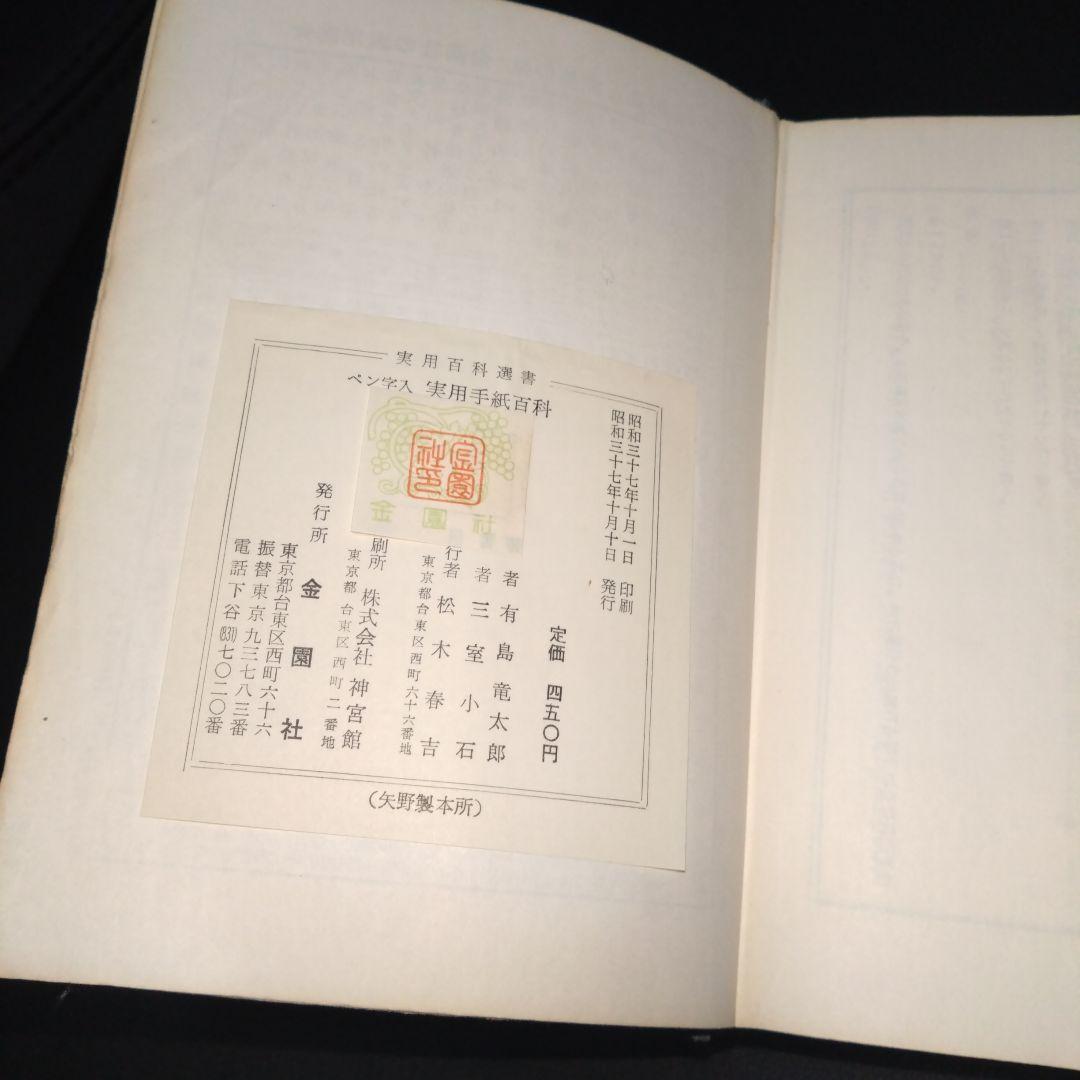 実用百科選書
ペン字入 実用手紙百科
昭和三十七年十月一日 印刷
昭和三十七年十月十日 発行
定価 四五〇円
者 有島竜太郎
者 三室小石
行者 松木春吉
東京都台東区西町六十六番地
刷所 株式会社 神宮館
東京都台東区西町二番地
発行所 金園社
東京都台東区西町六十六
振替東京九三七八三番
電話下谷(831)七〇二〇番
金園
金園社印
(矢野製本所)